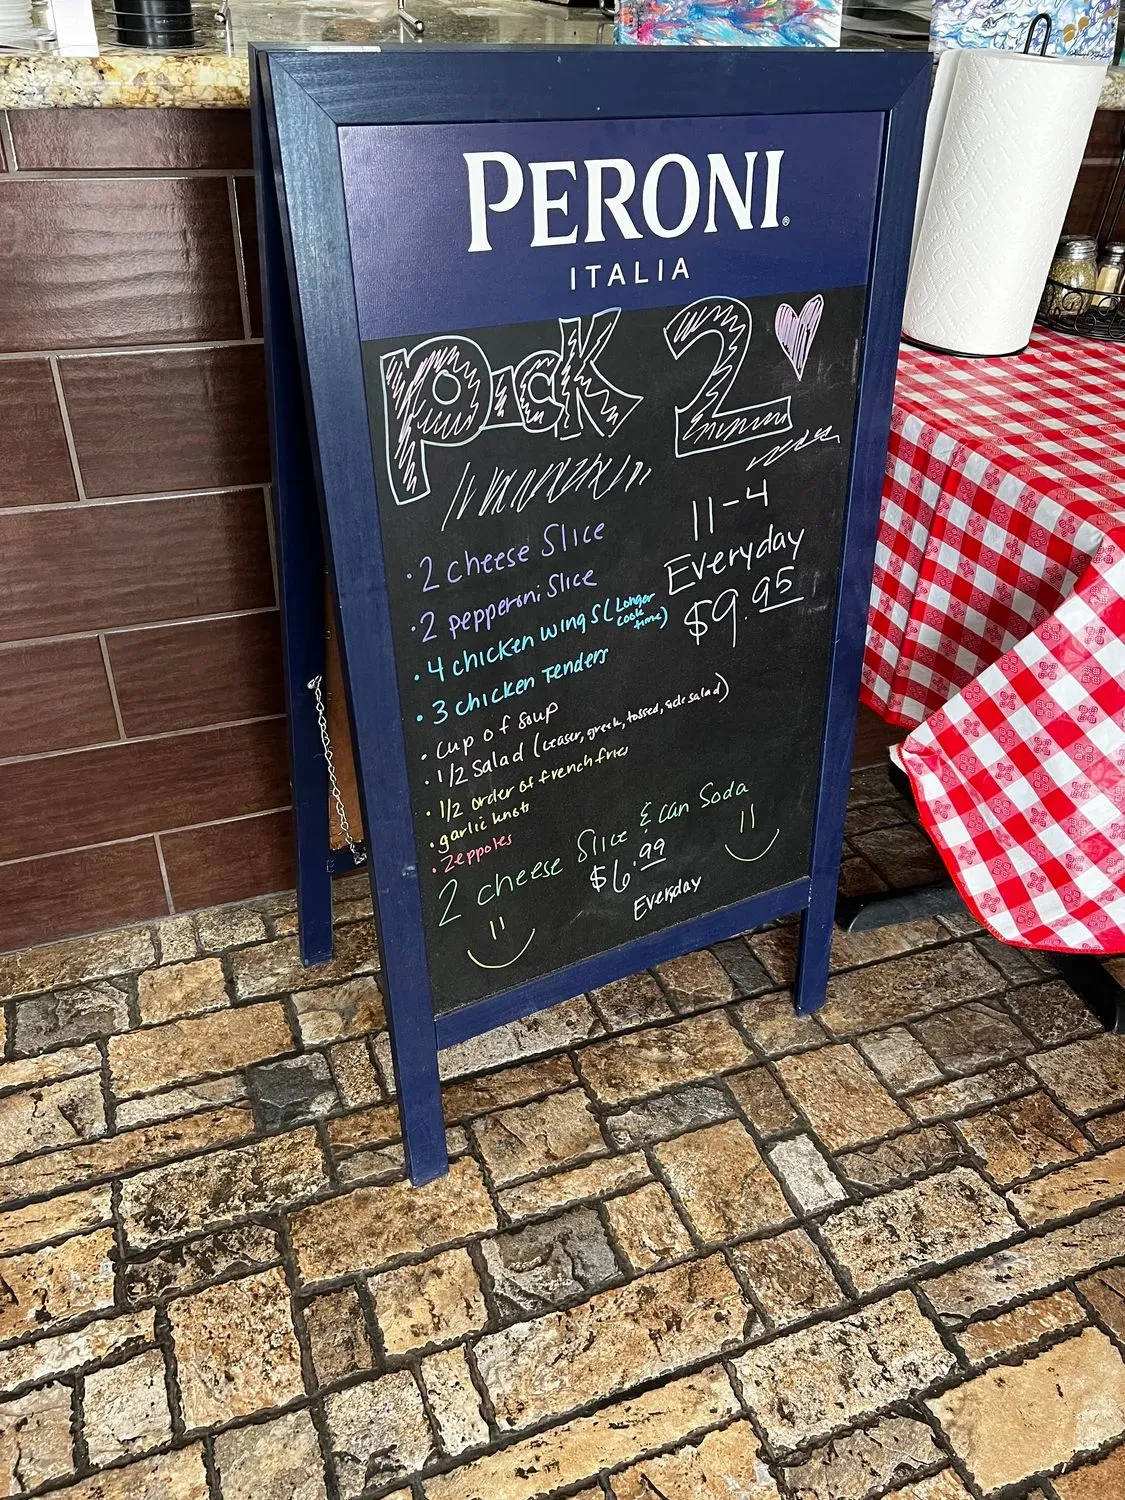 PERONI®
ITALIA
Pick 2
11-4
Everyday
$9.95
• 2 cheese Slice
• 2 pepperoni Slice
• 4 chicken wings (Longer cook time)
• 3 chicken Tenders
• cup of soup
• 1/2 salad (ceasar, greek, tossed, side salad)
• 1/2 order of french fries
• garlic knots
• Zeppoles
2 cheese Slice & can Soda
$6.99
Everyday